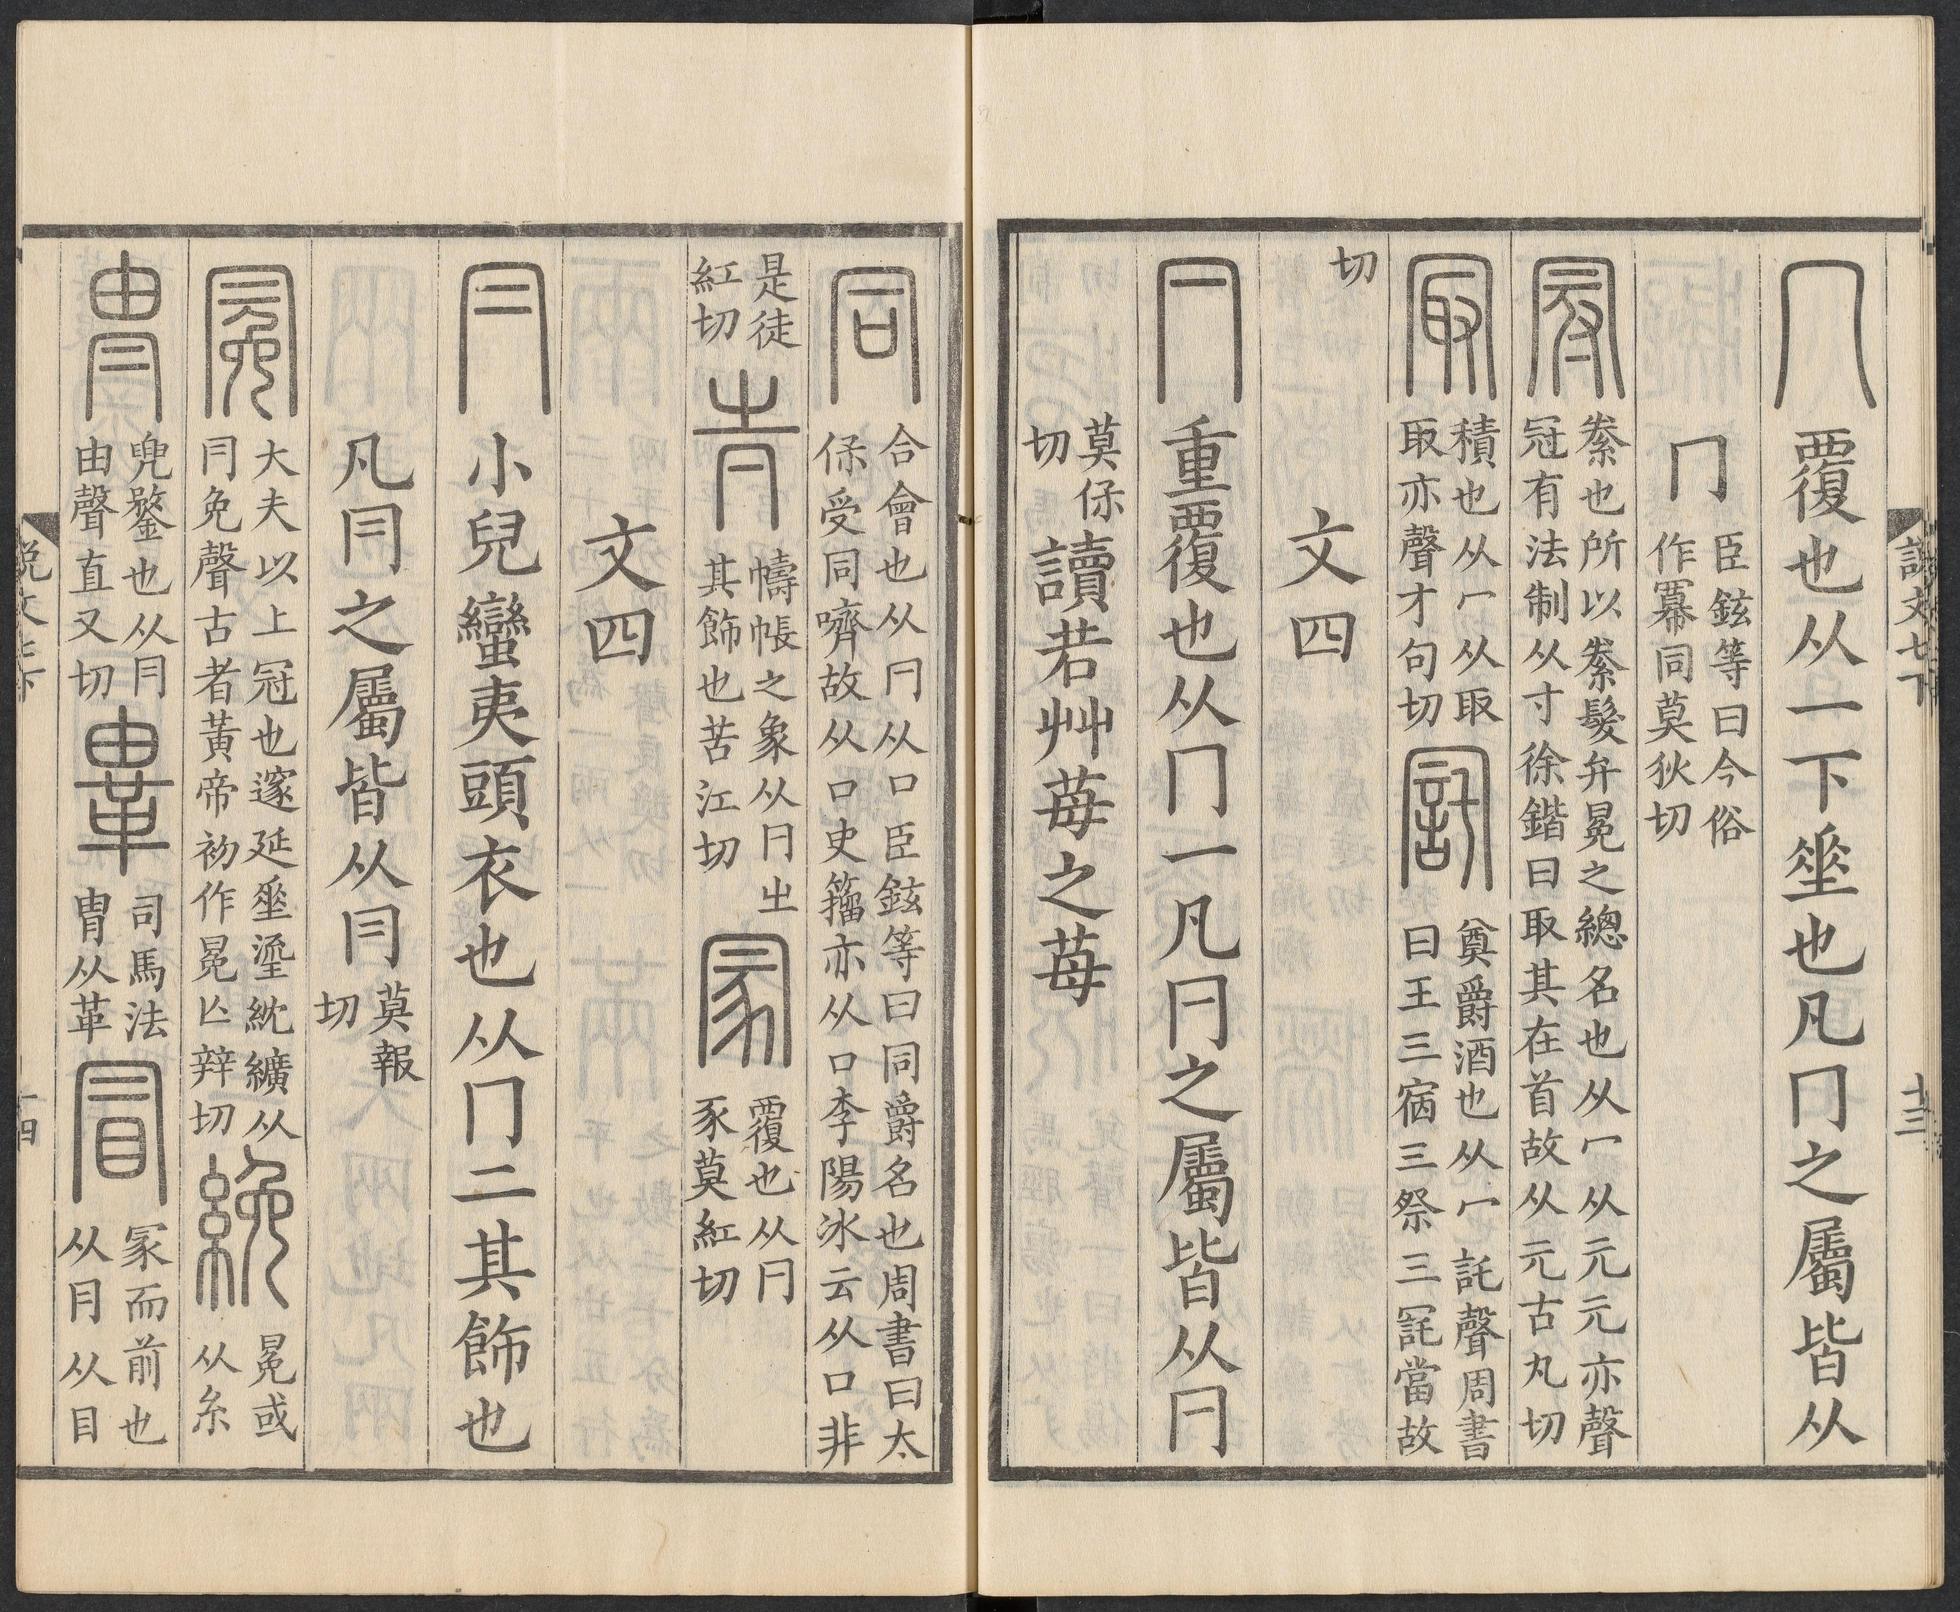 冖 覆也从一下𠂹也凡冖之屬皆从
冖 臣鉉等曰今俗作冪同莫狄切
冠 絭也所以絭髮弁冕之總名也从冖从元元亦聲冠有法制从寸徐鍇曰取其在首故从元古丸切
冣 積也从冖从取取亦聲才句切 𠖞 奠爵酒也从冖託聲周書曰王三宿三祭三𠖞當故
切
文四
冃 重覆也从冖一凡冃之屬皆从冃
莫保切 讀若艸苺之苺
同 合會也从冃从口臣鉉等曰同爵名也周書曰太保受同嚌故从口史籀亦从口李陽冰云从口非
是徒紅切 㡁 幬帳之象从冃㞢其飾也苦江切 冡 覆也从冃豕莫紅切
文四
冃 小兒蠻夷頭衣也从冂二其飾也
凡冃之屬皆从冃 莫報切
冕 大夫以上冠也邃延垂瑬紞纊从冃免聲古者黃帝初作冕亡辡切 絻 冕或从糸
冑 兜鍪也从冃由聲直又切 𩊄 司馬法冑从革 冒 冡而前也从冃从目
說文七下
十三
說文七下
十四